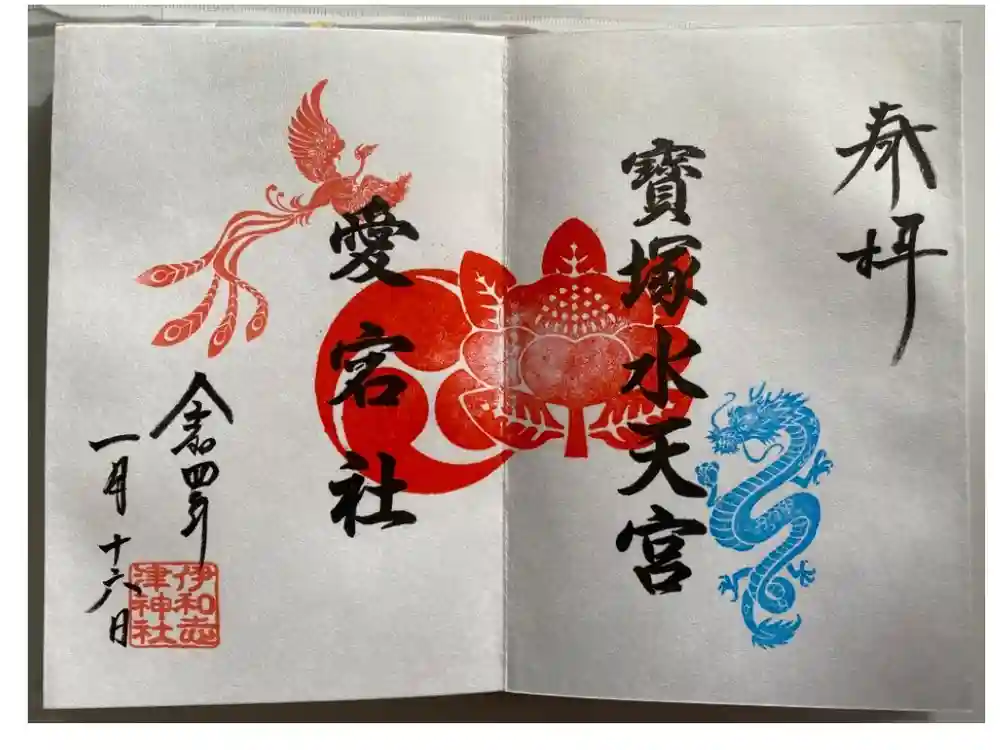 奉拝
寳塚水天宮
愛宕社
令和四年
一月十六日
伊和志
津神社